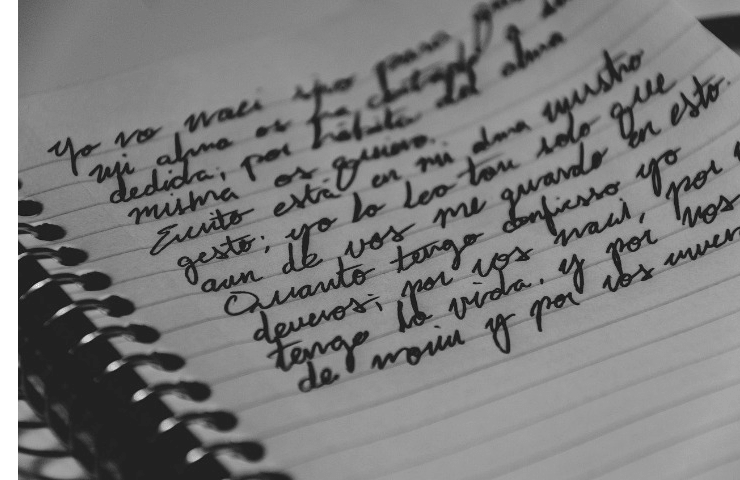 Yo no naci sino para
mi alma os ha cortado a su
dedida; por hábito del alma
mishma os quiero.
Escrito está en mi alma vuestro
gesto; yo lo leo tan solo que
aun de vos me guardo en esto.
Quanto tengo confieso yo
deveros; por vos naci, por
tengo la vida, y por vos
de morir y por vos muero